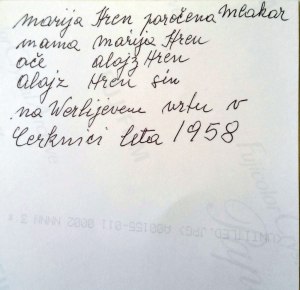 marija Hren poročena Mlakar
mama marija Hren
oče alojz Hren
alojz Hren sin
na Werlijevem vrtu v
Cerknici leta 1958